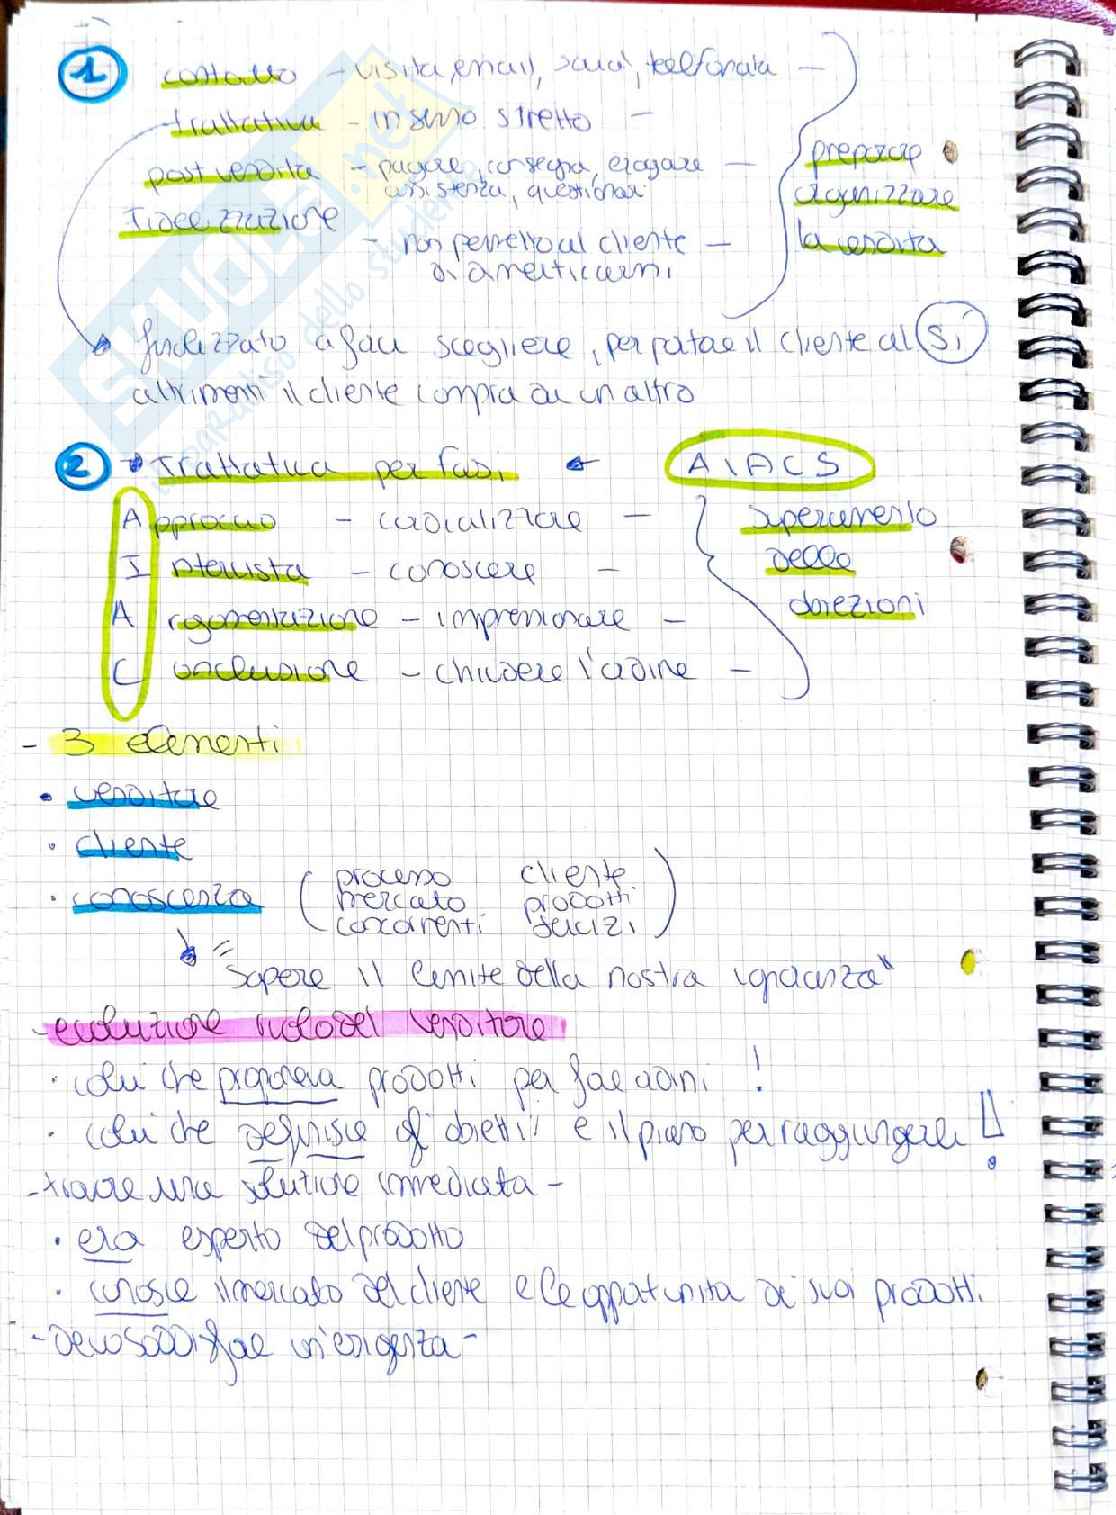 1 contatto - visita, email, social, telefonata -
trattativa - in senso stretto -
post vendita - pagare, consegna, erogare -
assistenza, questionari
fidelizzazione
- non permetto al cliente -
di dimenticarmi
preparare
organizzare
la vendita
finalizzato a far scegliere, per portare il cliente al Sì
altrimenti il cliente compra da un altro
2 Trattativa per fasi ← AIACS
Approccio - cordializzare -
Intervista - conoscere -
Argomentazione - impressionare -
Conclusione - chiudere l'ordine -
Superamento
delle
obiezioni
- 3 elementi
• venditore
• cliente
• conoscenza ( processo cliente
mercato prodotti
concorrenti servizi )
= "Sapere il limite della nostra ignoranza"
- evoluzione ruolo del venditore
• colui che proponeva prodotti per fare ordini !
• colui che definisce gli obiettivi e il piano per raggiungerli !!
- trovare una soluzione immediata -
• era esperto del prodotto
• conosce il mercato del cliente e le opportunità dei suoi prodotti
- devo soddisfare un'esigenza -
SKUOLA.net
il paradiso dello studente